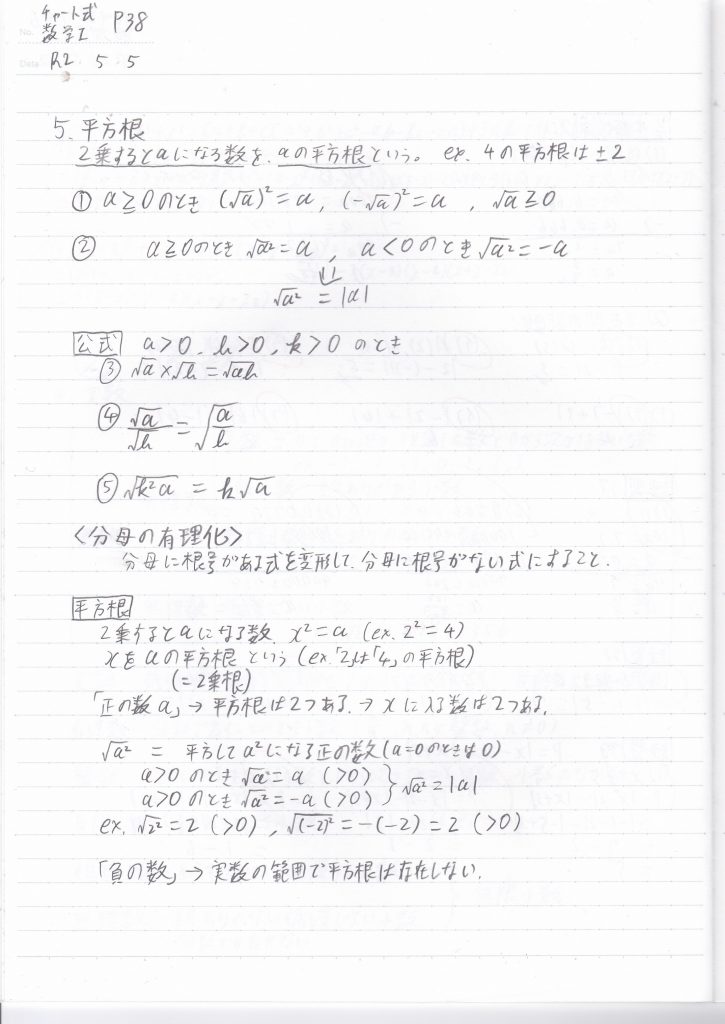 チャート式
数学I P38
No.
Date R2 5 5
5. 平方根
2乗するとaになる数を、aの平方根という。 ex. 4の平方根は±2
① a≧0のとき (√a)²=a, (-√a)²=a , √a≧0
② a≧0のとき √a²=a , a<0のとき√a²=-a
⇓
√a² = |a|
公式 a>0, b>0, k>0 のとき
③ √a×√b=√ab
④ √a/√b = √(a/b)
⑤ √k²a = k√a
〈分母の有理化〉
分母に根号がある式を変形して、分母に根号がない式にすること.
平方根
2乗するとaになる数. x²=a (ex. 2²=4)
xをaの平方根 という (ex.「2」は「4」の平方根)
(=2乗根)
「正の数a」→ 平方根は2つある. → xに入る数は2つある.
√a² = 平方してa²になる正の数(a=0のときは0)
a>0 のとき √a²=a (>0)
a>0 のとき √a²=-a (>0) } √a²=|a|
ex. √2²=2 (>0) , √(-2)²=-(-2)=2 (>0)
「負の数」→ 実数の範囲で平方根は存在しない.